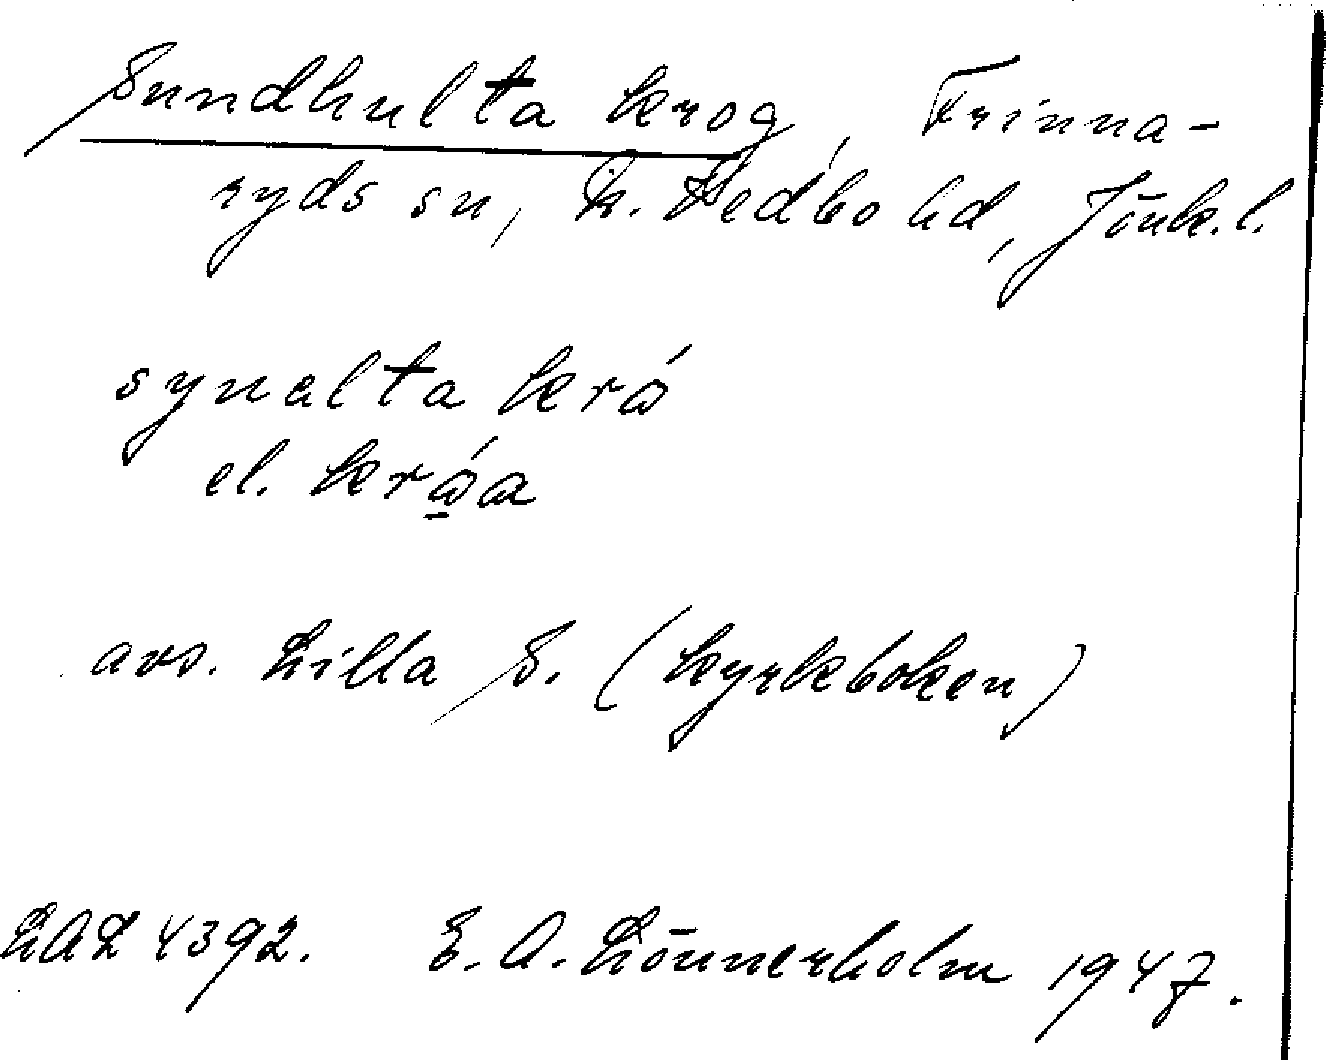 Sundhulta krog, Frinna-
ryds sn, N. Vedbo hd, Jönk. l.
synalta kró
el. króa
avs. Lilla S. (kyrkboken)
LAL 4392. E. A. Lönnerholm 1947.